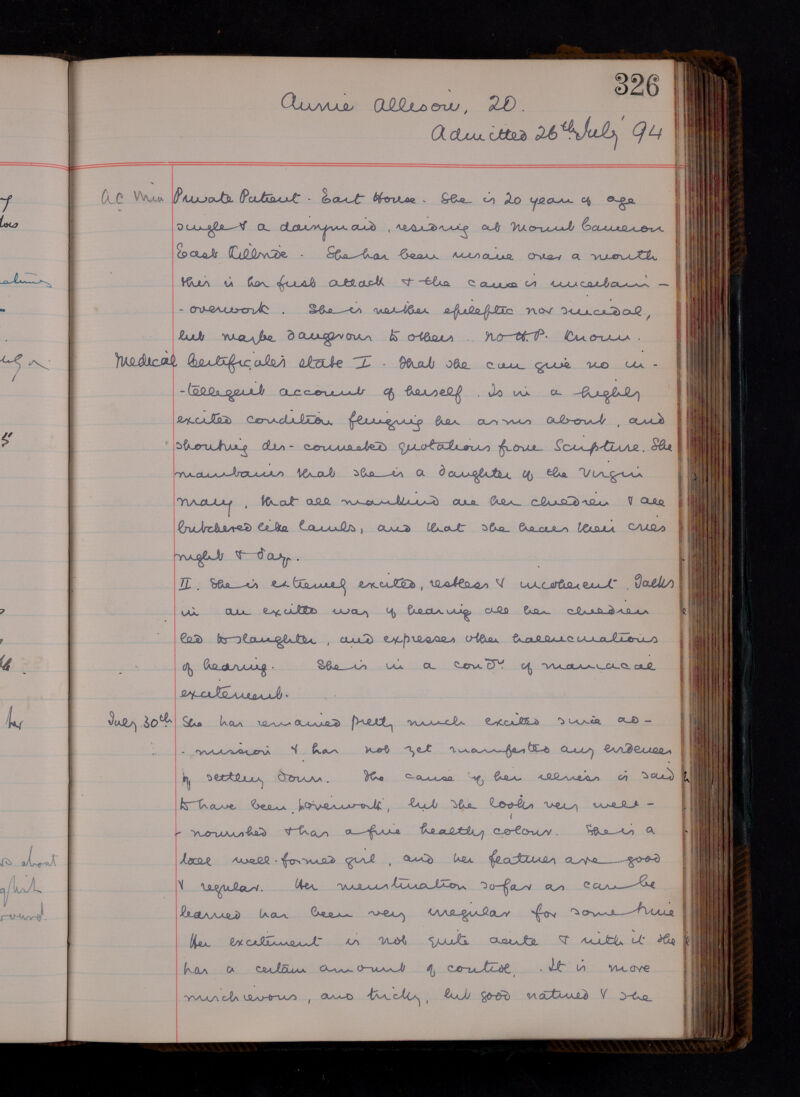 326
Annie Allison, 20.
Admitted 26th July 94
Ac Min Private Patient. East House. She is 20 years of age
single & a dairymaid, residing at Mount Cameron
East Kilbride. She has been insane over a month
this is her first attack & the cause is uncertain -
- overwork. She is neither epileptic nor suicidal,
but maybe dangerous to others. No H.P. known.
Medical Certificates state I. That she can give no in-
-telligent account of herself. Is in a highly
excited condition flinging her arms about, and
shouting dis-connected quotations from Scripture. She
maintains that she is a daughter of the Virgin
Mary, that all mankind are her children & are
butchered like lambs, and that she hears their cries
night & day.
II. She is extremely excited, restless & incoherent. Talks
in an excited way of hearing all her children
led to slaughter, and expresses other hallucinations
of hearing. She is in a condn of maniacal
excitement.
July 30th She has remained pretty much excited since ad-
- mission & has not yet manifested any evidences
of settling down. The cause of her illness is said
to have been overwork, but she looks very well-
- nourished & has a fine healthy colour. She is a
tall well-formed girl, and her features are good
& regular. Her menstruation so far as can be
learned has been very irregular for some time
Her excitement is not quite acute & with it she
has a certain amount of control. It is more
mischievous, and tricky, but good natured & she
her
about